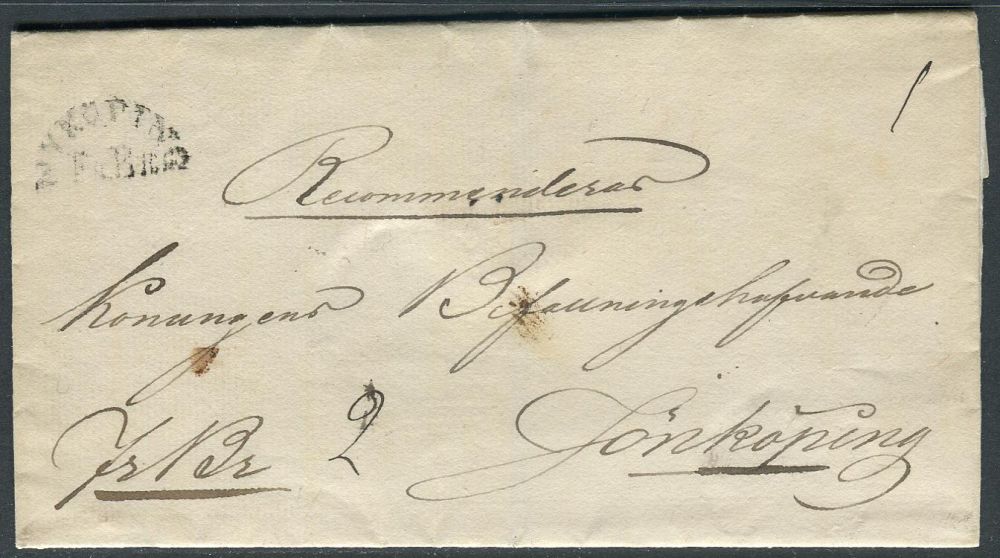 NYKÖPING
1
Recommenderas
Konungens Befallningshafvande
Fr Br 2 Jönköping